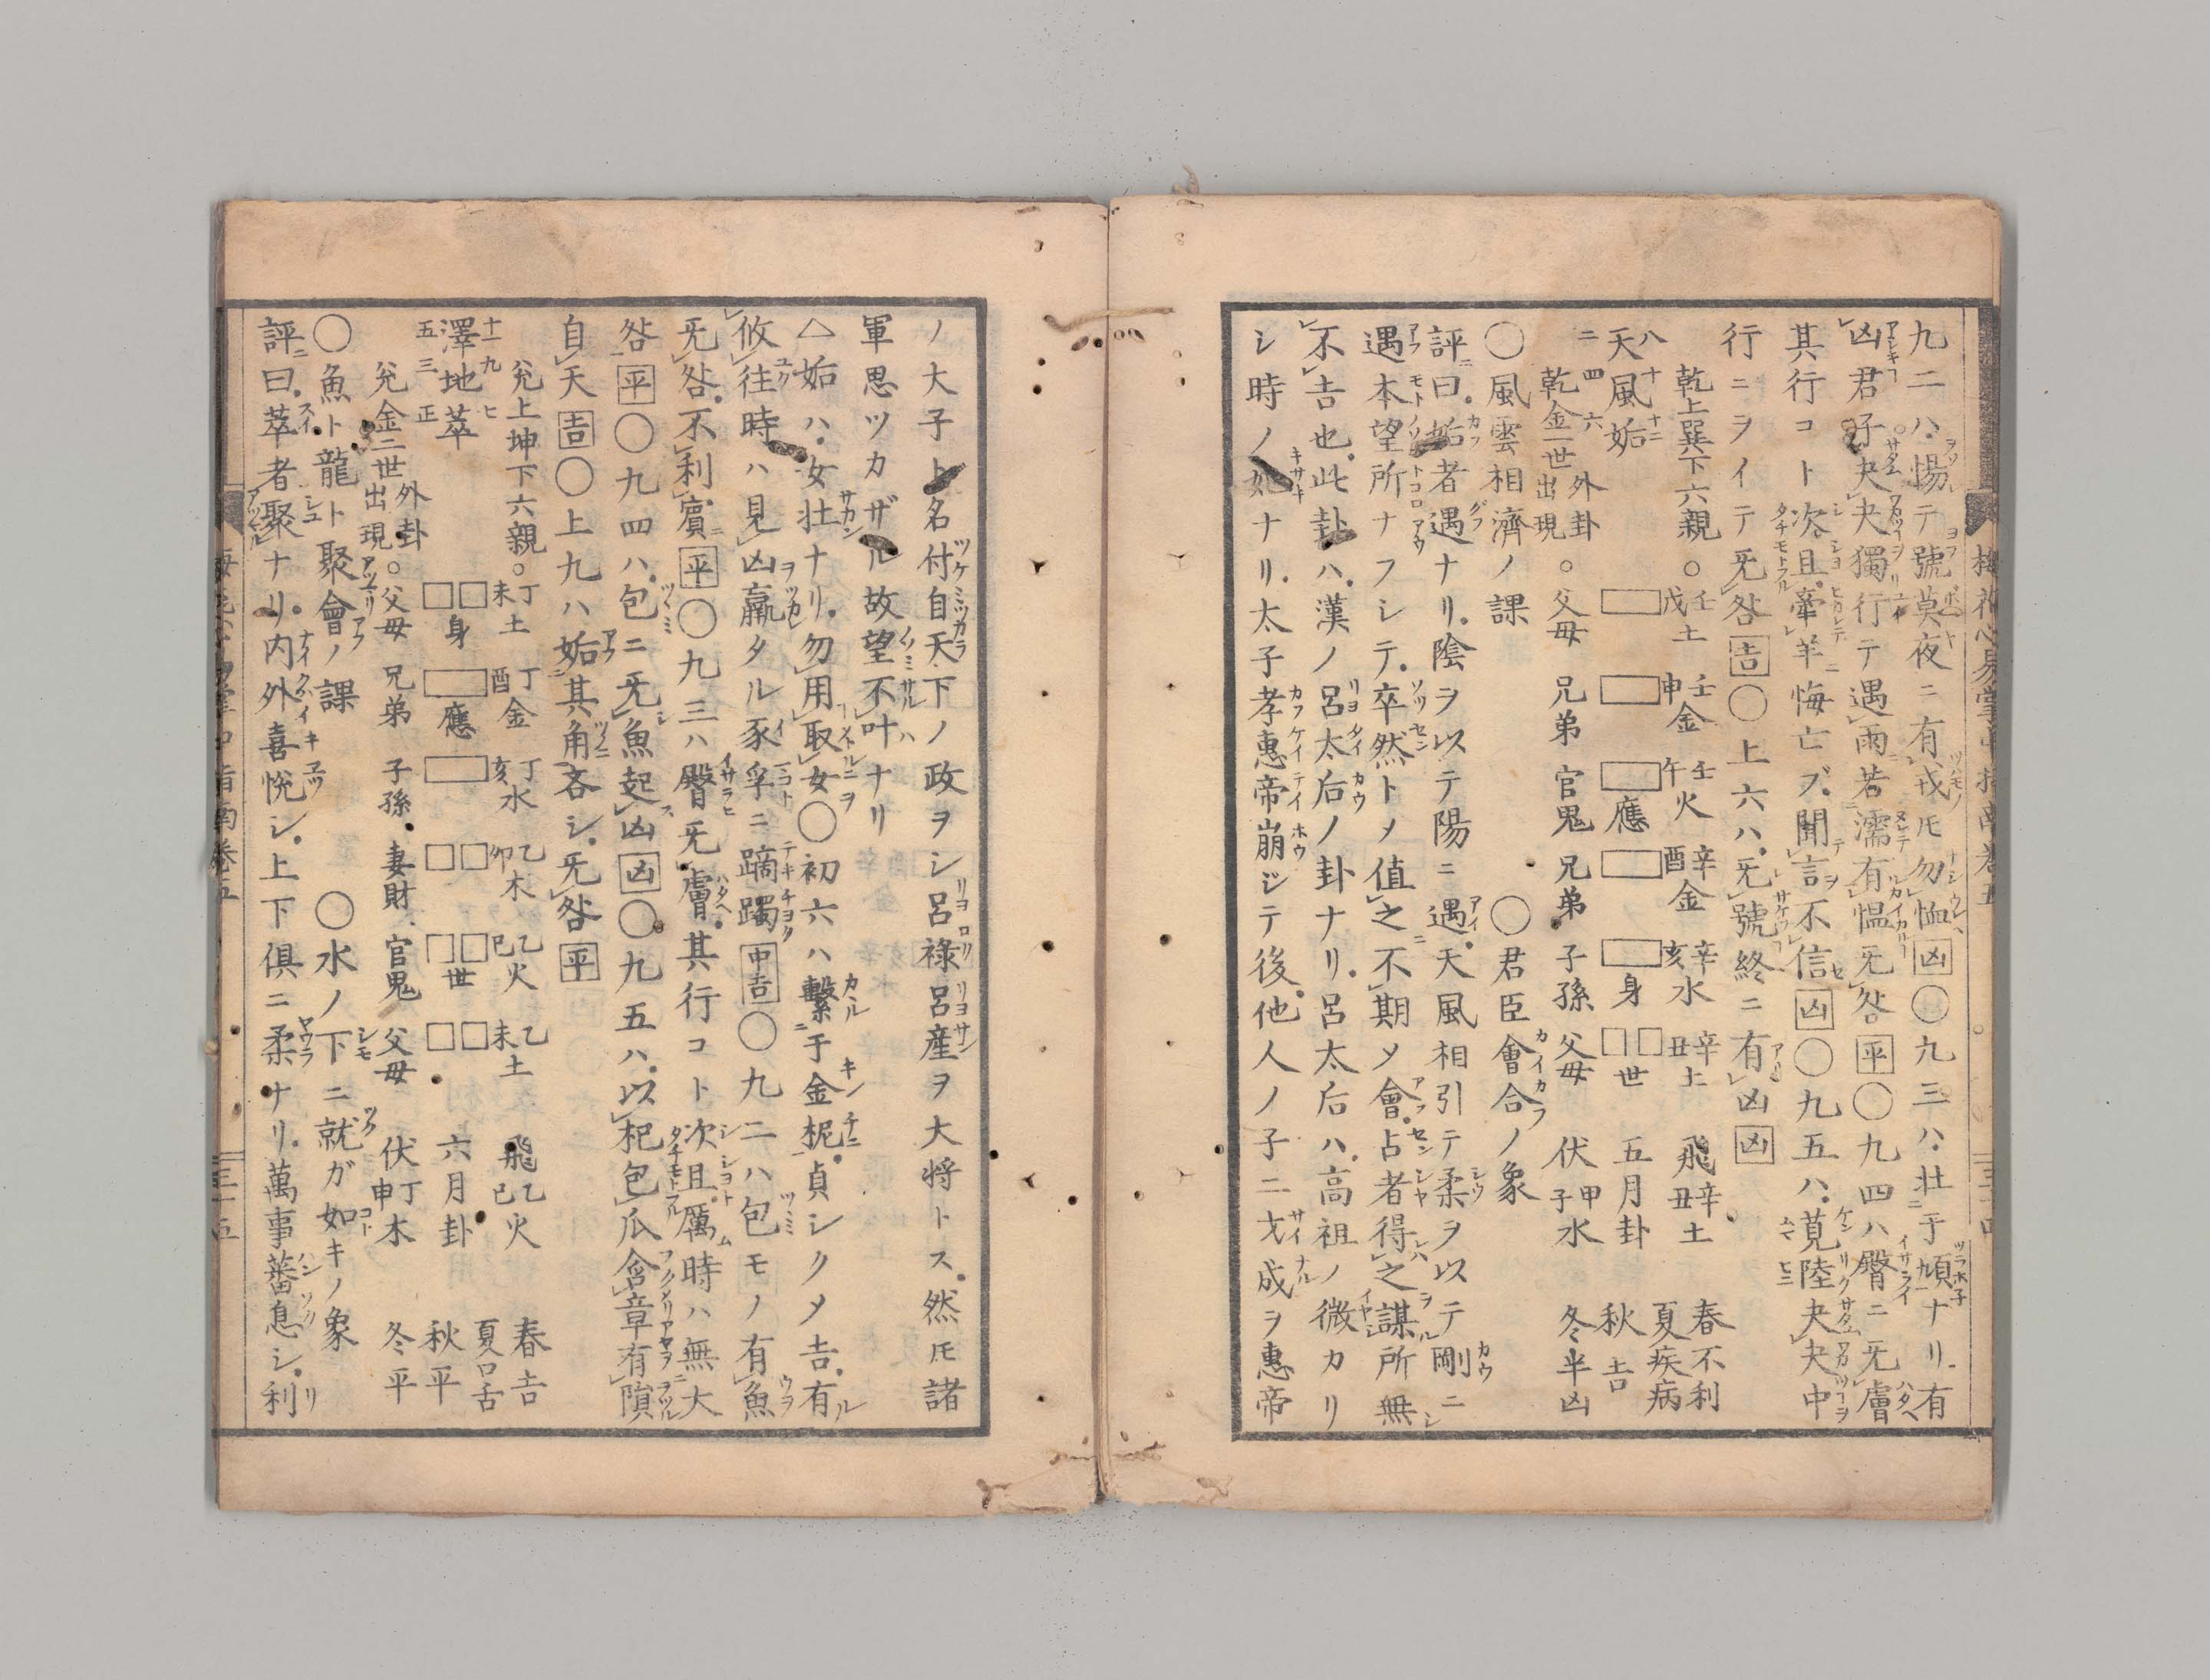 梅花心易掌中指南巻五
九二ハ惕テ號莫夜ニ有戎𪜈勿恤凶〇九三ハ壮于頄ナリ有
凶君子夬夬獨行テ遇雨若濡有慍旡咎平〇九四ハ臀ニ旡膚
其行コト次且牽羊悔亡ブ聞言不信凶〇九五ハ莧陸夬夬中
行ニヲイテ旡咎吉〇上六ハ旡號終ニ有凶凶
乾上巽下六親。壬戌土 壬申金 壬午火 辛酉金 辛亥水 辛丑土 飛辛丑土 春不利
夏疾病
八 十 十二
天風姤 應 身 世 五月卦 秋吉
二 四 六
乾金一世出現外卦。父母 兄弟 官鬼 兄弟 子孫 父母 伏甲子水 冬半凶
〇風雲相濟ノ課 〇君臣會合ノ象
評曰姤者遇ナリ陰ヲ以テ陽ニ遇天風相引テ柔ヲ以テ剛ニ
遇本望所ナフシテ卒然トメ値之不期メ會占者得之謀所無
不吉也此卦ハ漢ノ呂太后ノ卦ナリ呂太后ハ高祖ノ微カリ
シ時ノ妃ナリ太子孝惠帝崩ジテ後他人ノ子ニ戈成ヲ惠帝
ノ大子ト名付自天下ノ政ヲシ呂祿呂産ヲ大将トス然𪜈諸
軍思ツカザル故望不叶ナリ
△姤ハ女壮ナリ勿用取女〇初六ハ繫于金柅貞シクメ吉有
攸往時ハ見凶羸タル豕孚ニ蹢躅中吉〇九二ハ包モノ有魚
旡咎不利賓平〇九三ハ臀旡膚其行コト次且厲時ハ無大
咎平〇九四ハ包ニ旡魚起凶凶〇九五ハ以杞包瓜含章有隕
自天吉〇上九ハ姤其角吝シ旡咎平
兊上坤下六親。丁未土 丁酉金 丁亥水 乙卯木 乙巳火 乙未土 飛乙巳火 春吉
夏口舌
十一 九 七
澤地萃 身 應 世 六月卦 秋平
五 三 正
兊金二世出現外卦。父母 兄弟 子孫 妻財 官鬼 父母 伏丁申木 冬平
〇魚ト龍ト聚會ノ課 〇水ノ下ニ就ガ如キノ象
評曰萃者聚ナリ内外喜悅シ上下倶ニ柔ナリ萬事蕃息シ利